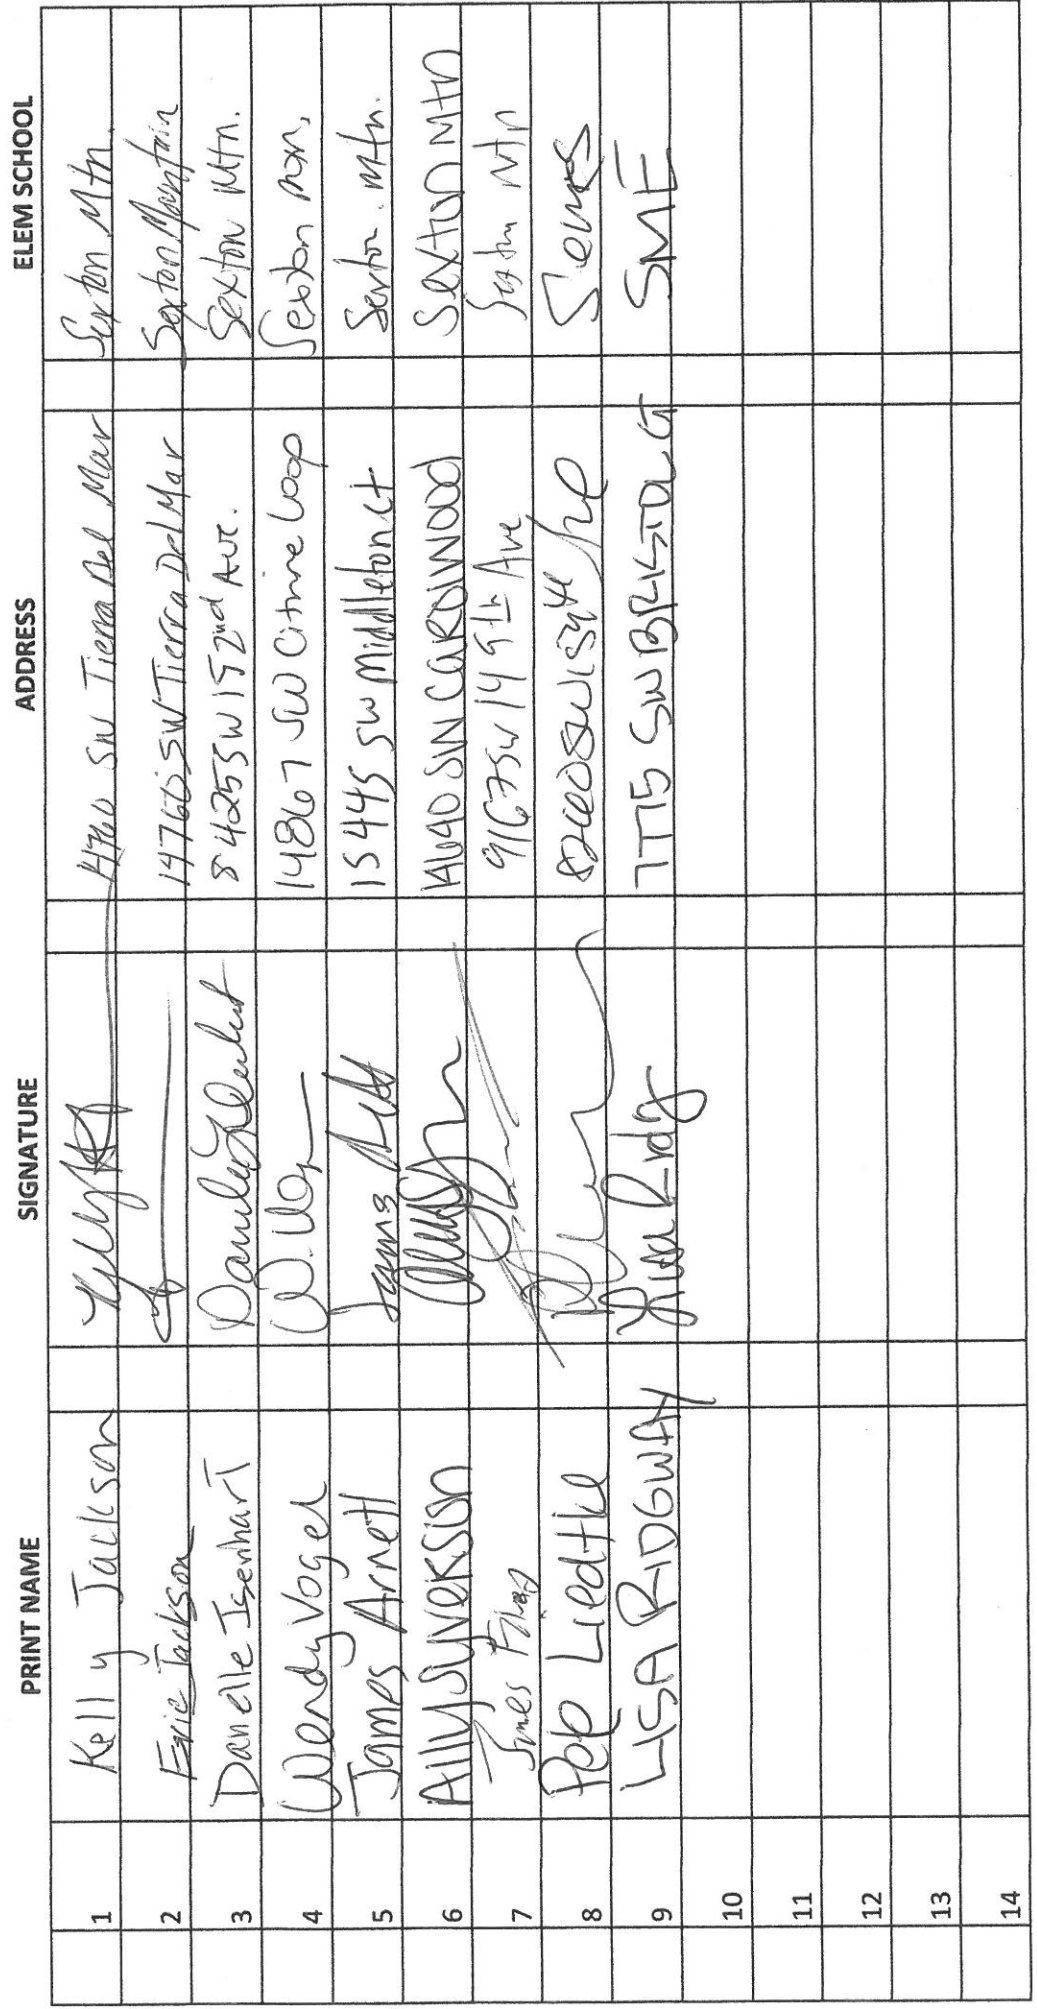 PRINT NAME SIGNATURE ADDRESS ELEM SCHOOL
1 Kelly Jackson SW Tierra Del Mar Sexton Mtn.
2 Eric Jackson 14765 SW Tierra Del Mar Sexton Mountain
3 Danelle Isenhart Danelle Isenhart 8425 SW 152nd Ave. Sexton Mtn.
4 Wendy Vogel W. Vog 14867 SW Citrine Loop Sexton
5 James Arnett James 15445 SW Middleton Ct Sexton. Mtn.
6 Ally Syverson 14640 SW CARDINWOOD Sexton Mtn
7 James 9167 SW 149th Ave Sexton Mtn
8 Liedtke SW
9 LISA RIDGWAY Lisa Ridg 7775 SW BRISTOL CT SME
10
11
12
13
14